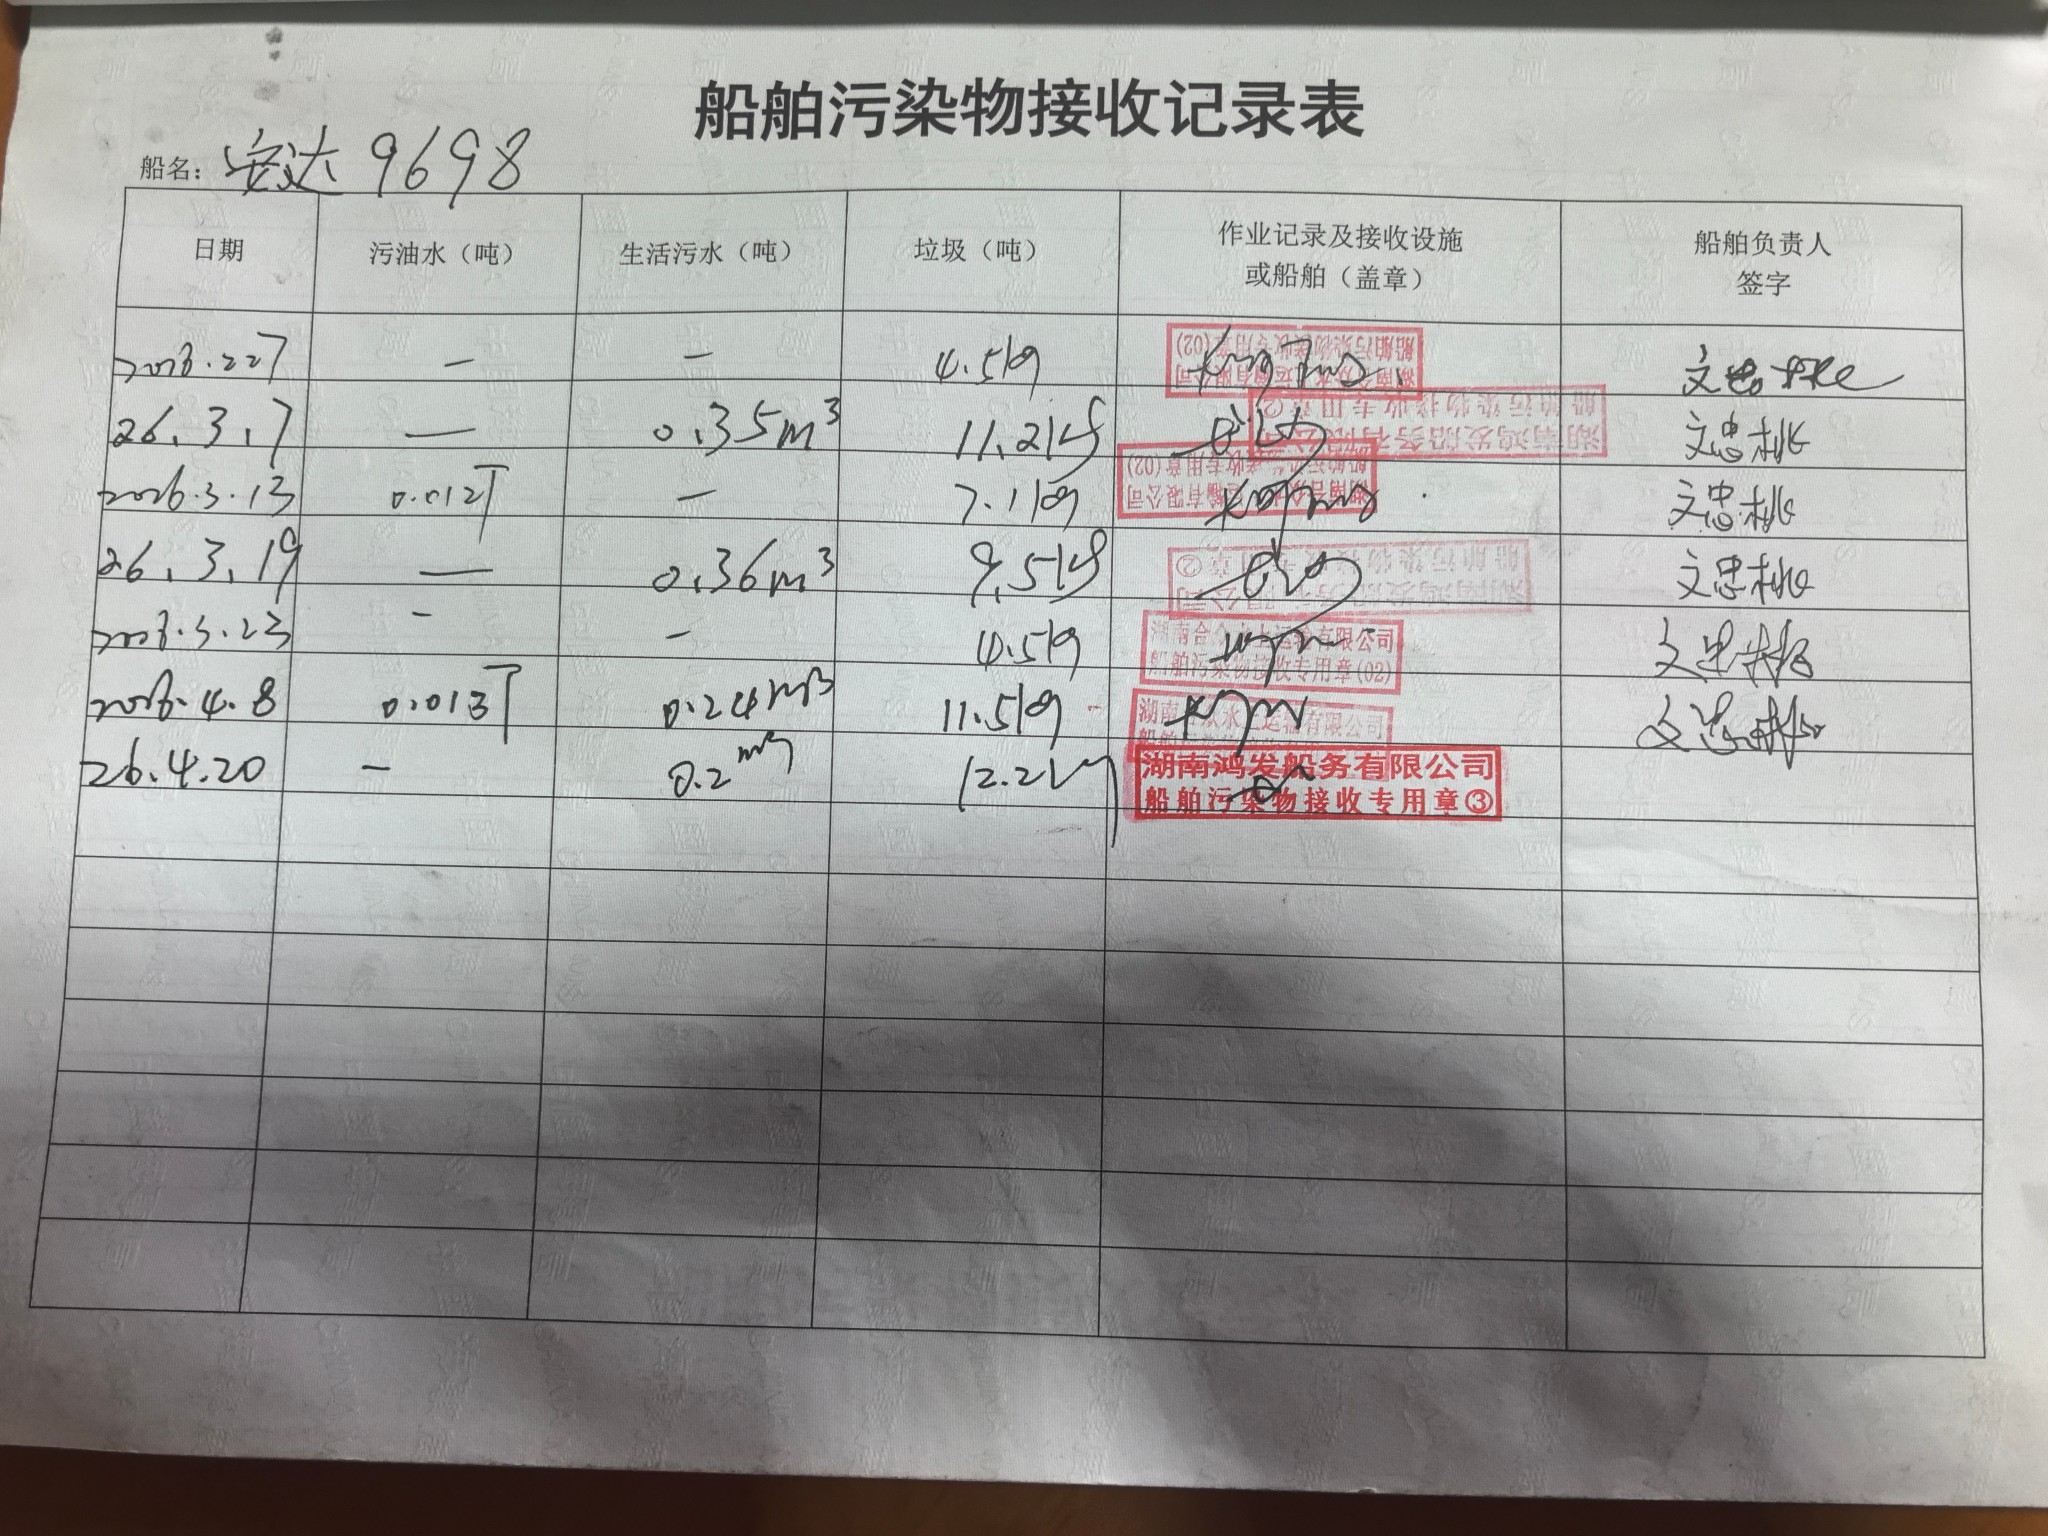 船舶污染物接收记录表
船名：安达9698
日期 污油水（吨） 生活污水（吨） 垃圾（吨） 作业记录及接收设施或船舶（盖章） 船舶负责人签字
2026.2.27 — — 4.5kg 湖南合众水上运输有限公司 船舶污染物接收专用章(02) 文忠桃
26.3.7 — 0.35m³ 11.2kg 湖南鸿发船务有限公司 船舶污染物接收专用章② 文忠桃
2026.3.13 0.012T — 7.1kg 湖南合众水上运输有限公司 船舶污染物接收专用章(02) 文忠桃
26.3.19 — 0.36m³ 9.5kg 湖南鸿发船务有限公司 船舶污染物接收专用章② 文忠桃
2026.3.23 — — 4.5kg 湖南合众水上运输有限公司 船舶污染物接收专用章(02) 文忠桃
2026.4.8 0.013T 0.24m³ 11.5kg 湖南合众水上运输有限公司 文忠桃
26.4.20 — 0.2m³ 12.2kg 湖南鸿发船务有限公司 船舶污染物接收专用章③